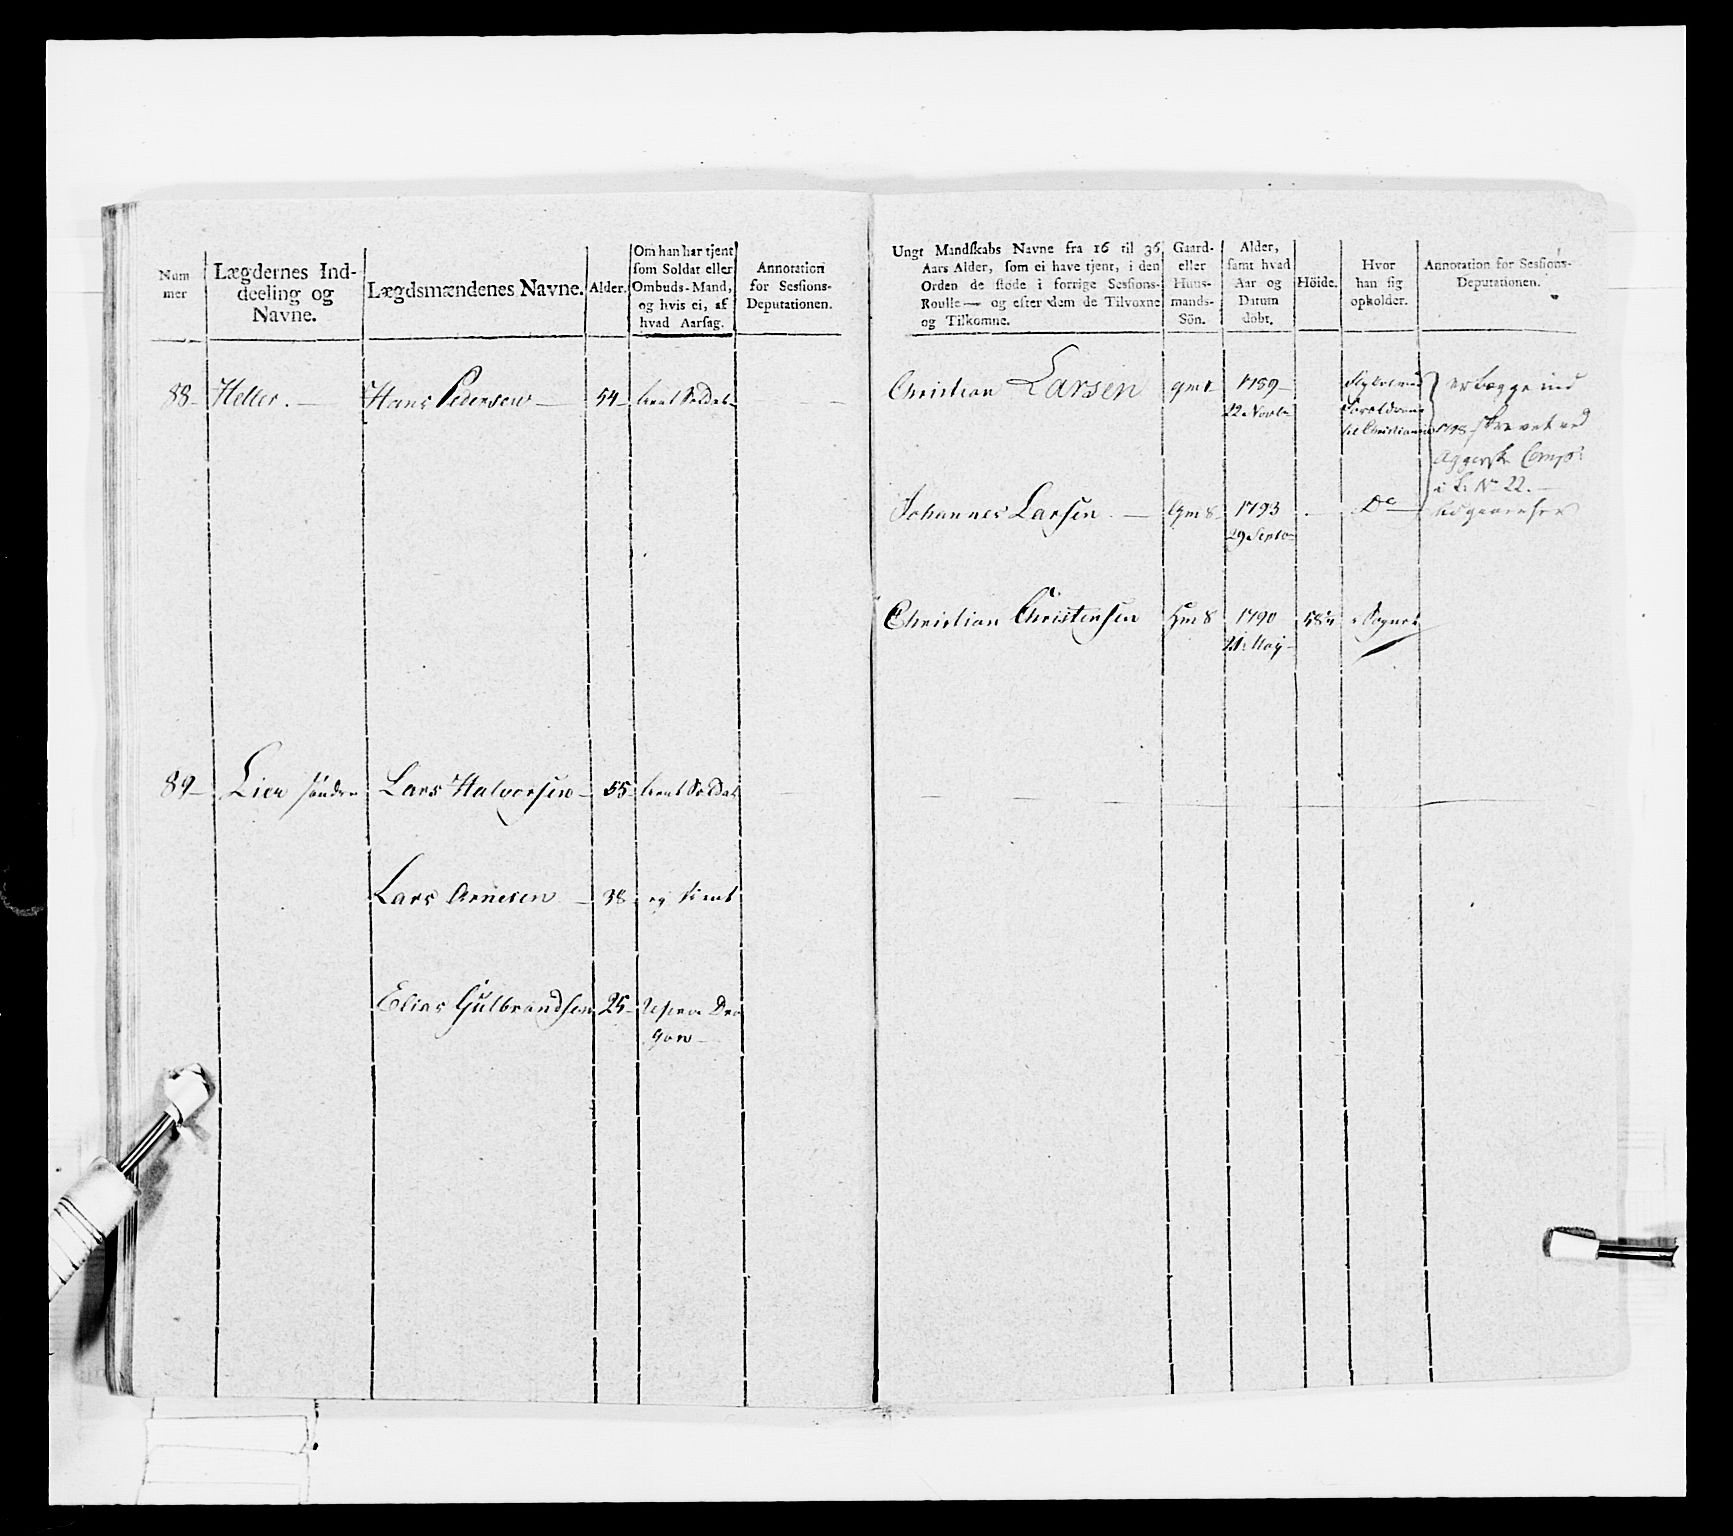 Num
mer
Lægdernes Ind-
deeling og
Navne.
Lægdsmændenes Navne.
Alder.
Om han har tjent
som Soldat eller
Ombuds-Mand,
og hvis ei, af
hvad Aarsag.
Annotation
for Sessions-
Deputationen.
88- Heller. — Hans Pedersen — 54-
89- Lien søndre Lars Halvorsen - 55-
Lars Arnesen — 38
Elias Gulbrandsen 25-
Dra
gon —
Ungt Mandskabs Navne fra 16 til 36
Aars Alder, som ei have tjent, i den
Orden de stode i forrige Sessions-
Roulle — og efter dem de Tilvoxne
og Tilkomne.
Gaard-
eller
Huus-
mands-
Sön.
Alder,
samt hvad
Aar og
Datum
döbt.
Höide.
Hvor
han sig
opholder.
Annotation for Sessions-
Deputationen.
Christian Larsen gm 1789 —
22 Novbr
til Christiania
er begge ind
1798 skrevet ved
Aggersh Comp:
i L: No 22. —
Johannes Larsen. — Gm 8 1793 - Do
29 Septbr
Christian Christensen Hm 8 1790 Sognet
21: May —